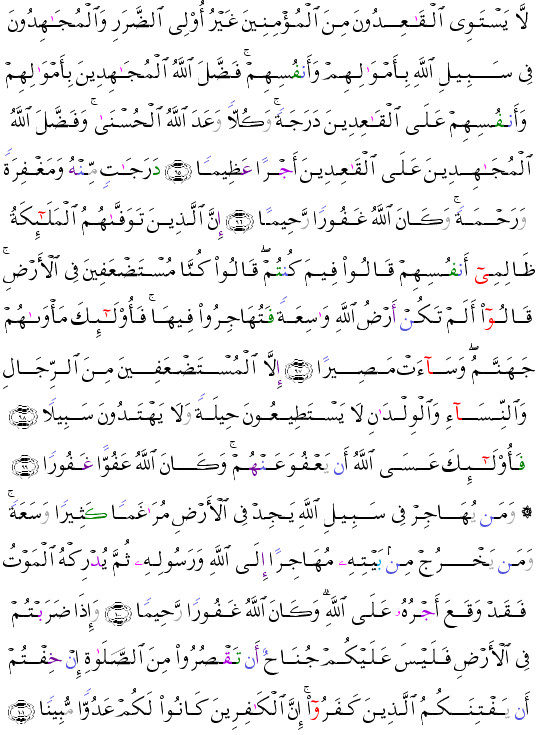 لَّا يَسْتَوِى ٱلْقَـٰعِدُونَ مِنَ ٱلْمُؤْمِنِينَ غَيْرُ أُو۟لِى ٱلضَّرَرِ وَٱلْمُجَـٰهِدُونَ
فِى سَبِيلِ ٱللَّهِ بِأَمْوَٰلِهِمْ وَأَنفُسِهِمْ ۚ فَضَّلَ ٱللَّهُ ٱلْمُجَـٰهِدِينَ بِأَمْوَٰلِهِمْ
وَأَنفُسِهِمْ عَلَى ٱلْقَـٰعِدِينَ دَرَجَةً ۚ وَكُلًّا وَعَدَ ٱللَّهُ ٱلْحُسْنَىٰ ۚ وَفَضَّلَ ٱللَّهُ
ٱلْمُجَـٰهِدِينَ عَلَى ٱلْقَـٰعِدِينَ أَجْرًا عَظِيمًا ۝٩٥ دَرَجَـٰتٍ مِّنْهُ وَمَغْفِرَةً
وَرَحْمَةً ۚ وَكَانَ ٱللَّهُ غَفُورًا رَّحِيمًا ۝٩٦ إِنَّ ٱلَّذِينَ تَوَفَّىٰهُمُ ٱلْمَلَـٰٓئِكَةُ
ظَالِمِىٓ أَنفُسِهِمْ قَالُوا۟ فِيمَ كُنتُمْ ۖ قَالُوا۟ كُنَّا مُسْتَضْعَفِينَ فِى ٱلْأَرْضِ ۚ
قَالُوٓا۟ أَلَمْ تَكُنْ أَرْضُ ٱللَّهِ وَٰسِعَةً فَتُهَاجِرُوا۟ فِيهَا ۚ فَأُو۟لَـٰٓئِكَ مَأْوَىٰهُمْ
جَهَنَّمُ ۖ وَسَآءَتْ مَصِيرًا ۝٩٧ إِلَّا ٱلْمُسْتَضْعَفِينَ مِنَ ٱلرِّجَالِ
وَٱلنِّسَآءِ وَٱلْوِلْدَٰنِ لَا يَسْتَطِيعُونَ حِيلَةً وَلَا يَهْتَدُونَ سَبِيلًا ۝٩٨
فَأُو۟لَـٰٓئِكَ عَسَى ٱللَّهُ أَن يَعْفُوَ عَنْهُمْ ۚ وَكَانَ ٱللَّهُ عَفُوًّا غَفُورًا ۝٩٩
۞ وَمَن يُهَاجِرْ فِى سَبِيلِ ٱللَّهِ يَجِدْ فِى ٱلْأَرْضِ مُرَٰغَمًا كَثِيرًا وَسَعَةً ۚ
وَمَن يَخْرُجْ مِنۢ بَيْتِهِۦ مُهَاجِرًا إِلَى ٱللَّهِ وَرَسُولِهِۦ ثُمَّ يُدْرِكْهُ ٱلْمَوْتُ
فَقَدْ وَقَعَ أَجْرُهُۥ عَلَى ٱللَّهِ ۗ وَكَانَ ٱللَّهُ غَفُورًا رَّحِيمًا ۝١٠٠ وَإِذَا ضَرَبْتُمْ
فِى ٱلْأَرْضِ فَلَيْسَ عَلَيْكُمْ جُنَاحٌ أَن تَقْصُرُوا۟ مِنَ ٱلصَّلَوٰةِ إِنْ خِفْتُمْ
أَن يَفْتِنَكُمُ ٱلَّذِينَ كَفَرُوٓا۟ ۚ إِنَّ ٱلْكَـٰفِرِينَ كَانُوا۟ لَكُمْ عَدُوًّا مُّبِينًا ۝١٠١